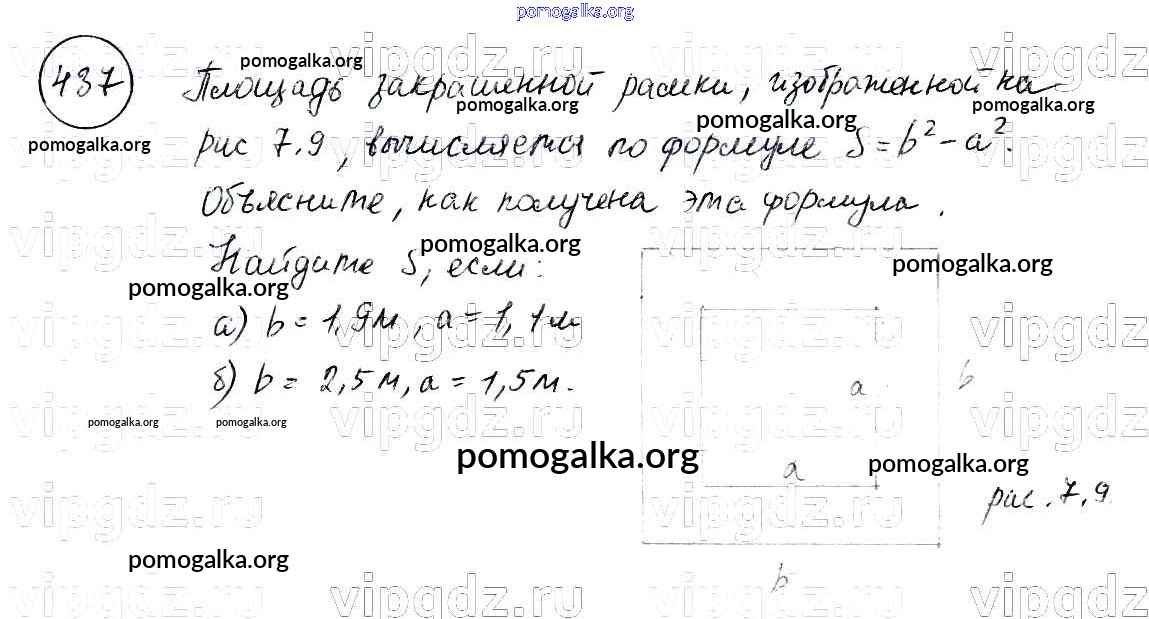 pomogalka.org
vipgdz.ru vipgdz.ru vipgdz.ru vipgdz.ru
pomogalka.org
437 Площадь закрашенной рамки, изображенной на
pomogalka.org pomogalka.org
pomogalka.org
рис 7.9, вычисляется по формуле S = b² - a².
pomogalka.org
vipgdz.ru vipgdz.ru vipgdz.ru vipgdz.ru
Объясните, как получена эта формула.
vipgdz.ru vipgdz.ru vipgdz.ru vipgdz.ru
pomogalka.org
Найдите S, если:
pomogalka.org
pomogalka.org
а) b = 1,9м, a = 1,1м
vipgdz.ru vipgdz.ru vipgdz.ru vipgdz.ru
б) b = 2,5м, a = 1,5м.
a b
vipgdz.ru vipgdz.ru vipgdz.ru vipgdz.ru
pomogalka.org pomogalka.org
pomogalka.org pomogalka.org
a
рис. 7.9
vipgdz.ru vipgdz.ru vipgdz.ru vipgdz.ru
pomogalka.org
b
vipgdz.ru vipgdz.ru vipgdz.ru vipgdz.ru